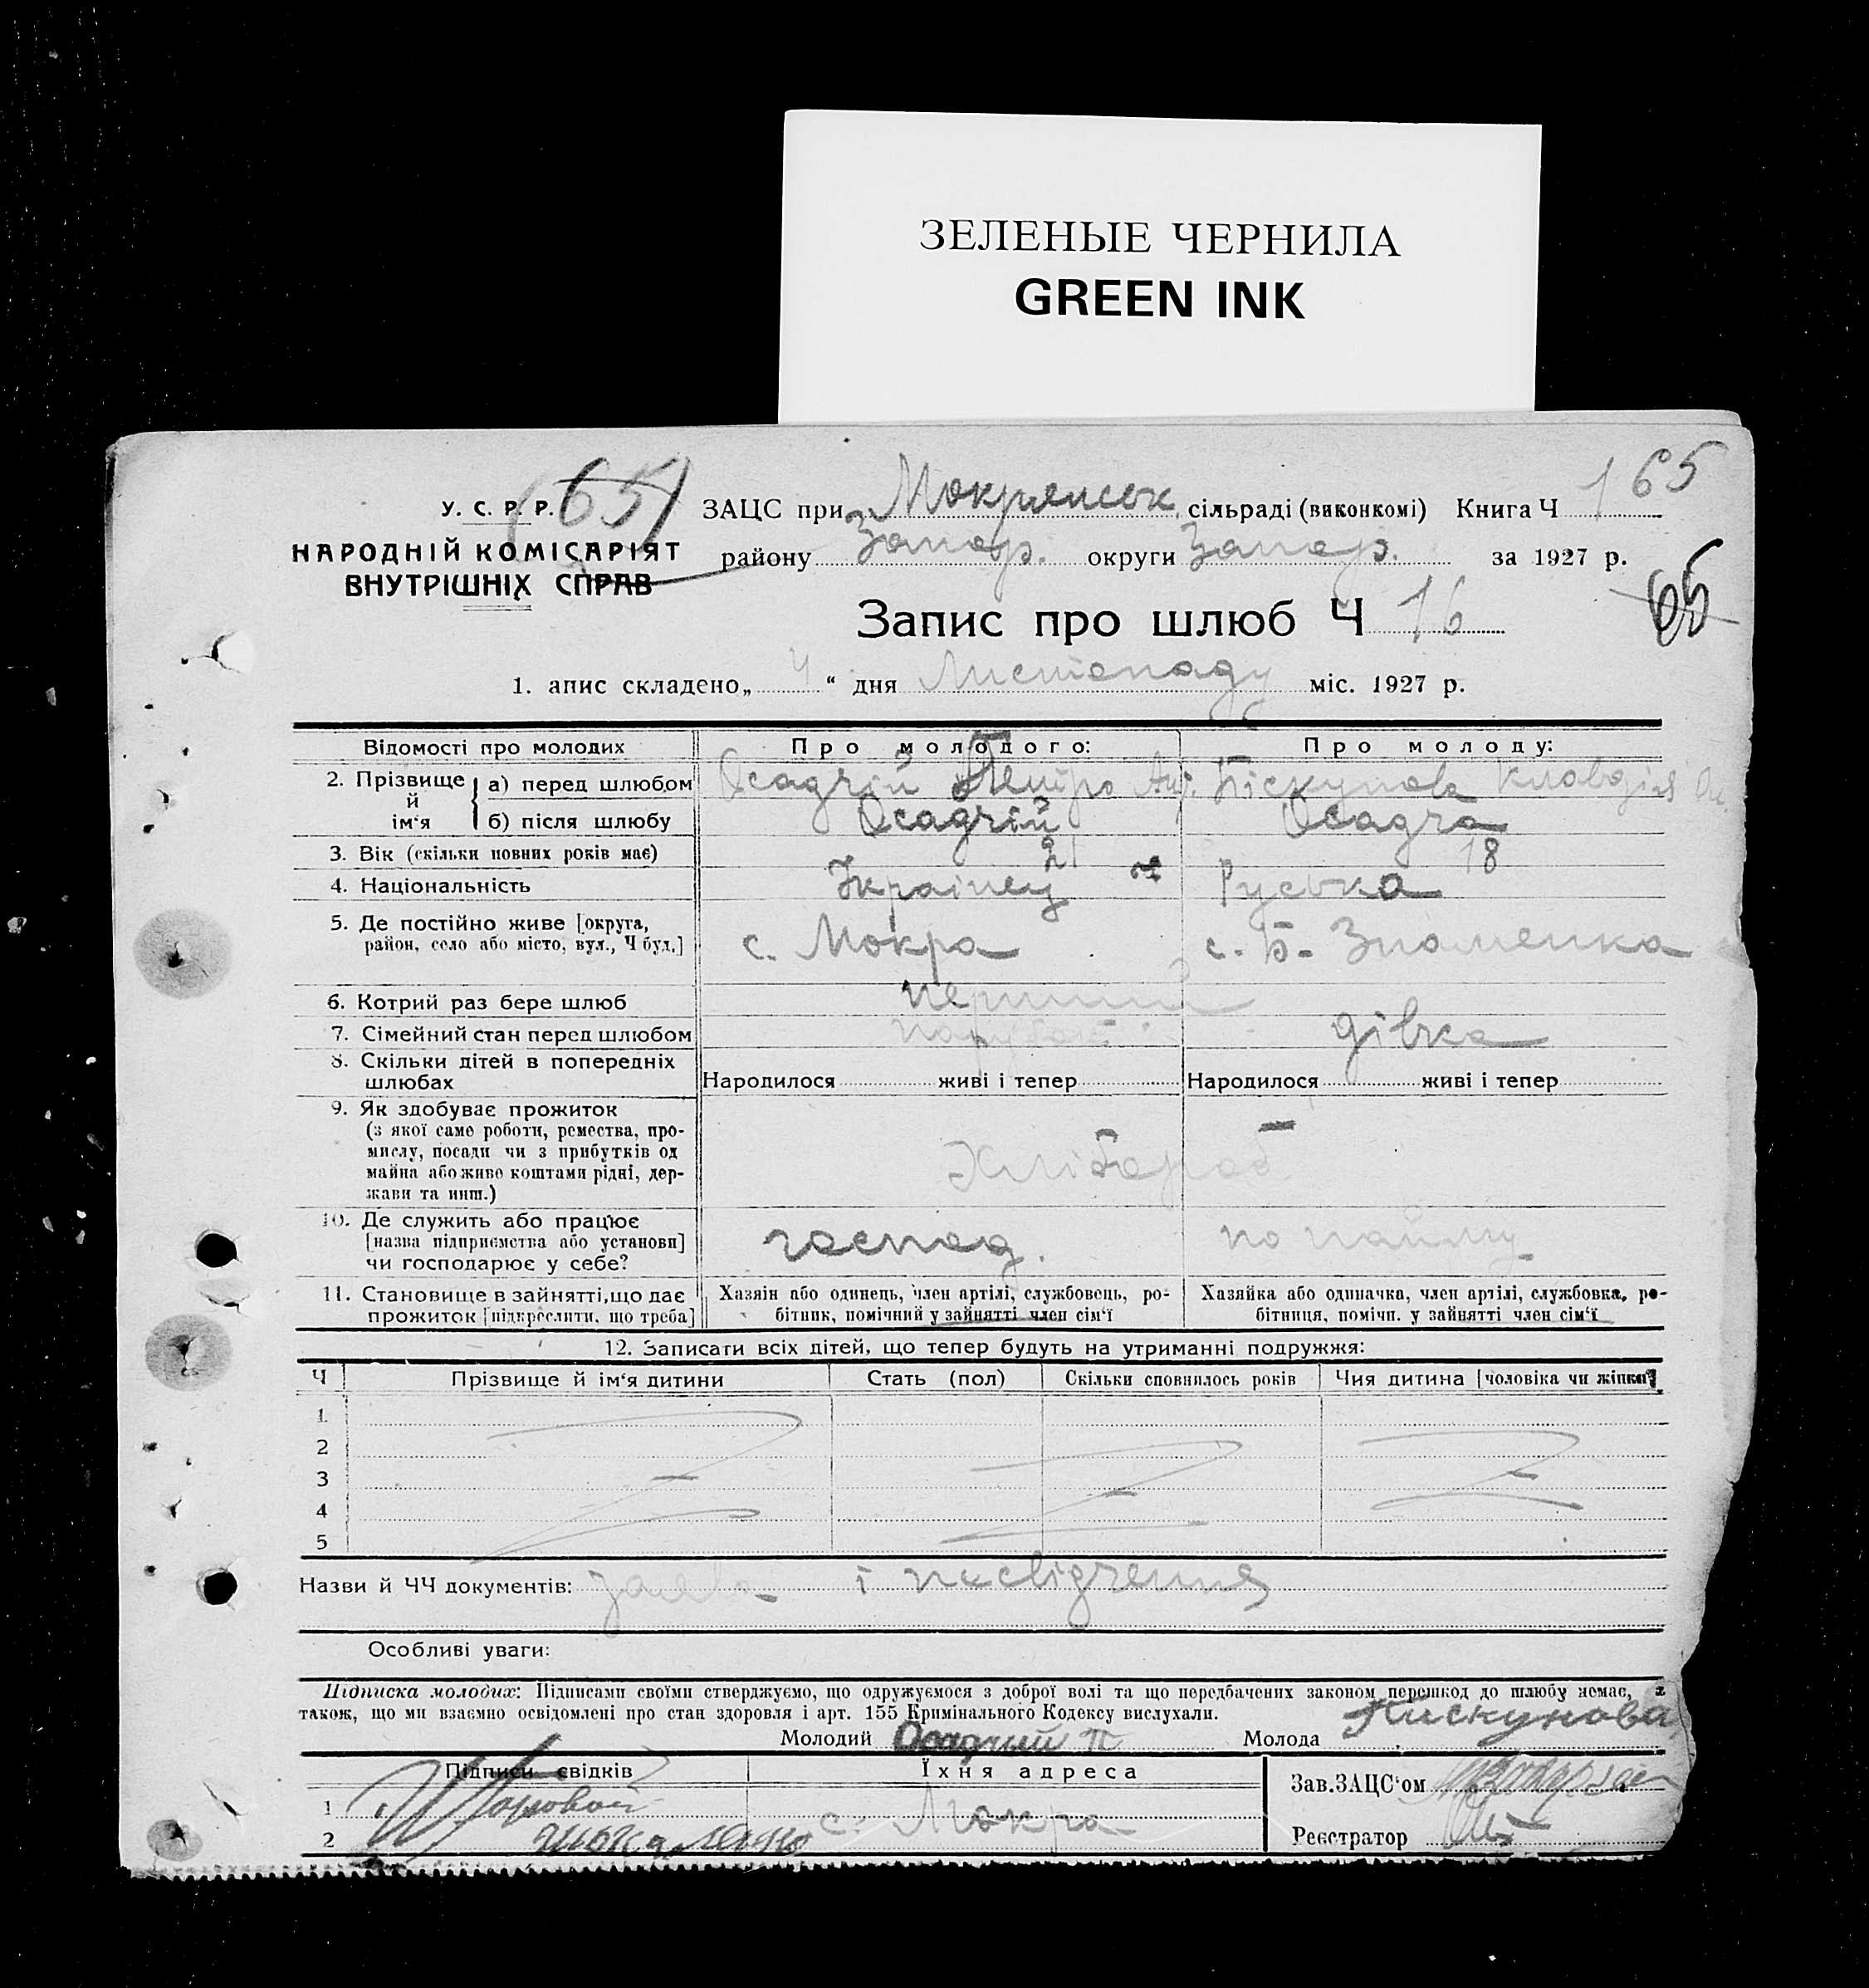 ЗЕЛЕНЫЕ ЧЕРНИЛА
GREEN INK
У. С. Р. Р.
(65)
НАРОДНІЙ КОМІСАРІЯТ
ВНУТРІШНІХ СПРАВ
ЗАЦС при Мокрянськ. сільраді (виконкомі) Книга Ч 1 65
району Запор. округи Запор. за 1927 р.
65
Запис про шлюб Ч 16
1. апис складено „ 4 “ дня Листопаду міс. 1927 р.
Відомості про молодих Про молодого: Про молоду:
2. Прізвище й ім‘я а) перед шлюбом Осадчій Петро Піскунова Клавдія
б) після шлюбу Осадчій Осадча
3. Вік (скільки повних років має) 21 18
4. Національність Українец Руська
5. Де постійно живе [округа, район, село або місто, вул., Ч буд.] с. Мокра с. Б- Знаменка
6. Котрий раз бере шлюб перший
7. Сімейний стан перед шлюбом парубок дівка
8. Скільки дітей в попередніх шлюбах Народилося живі і тепер Народилося живі і тепер
9. Як здобуває прожиток
(з якої саме роботи, ремества, про-
мислу, посади чи з прибутків од
майна або живе коштами рідні, дер-
жави та инш.) Хлібороб
10. Де служить або працює
[назва підприємства або установи]
чи господарює у себе? господ. по найму
11. Становище в зайнятті, що дає
прожиток [підкреслити, що треба]
Хазяін або одинець, член артілі, службовець, ро-
бітник, помічний у зайнятті член сім‘ї
Хазяйка або одиначка, член артілі, службовка, ро-
бітниця, помічн. у зайнятті член сім‘ї
12. Записати всіх дітей, що тепер будуть на утриманні подружжя:
Ч Прізвище й ім‘я дитини Стать (пол) Скільки сповнилось років Чия дитина [чоловіка чи жінки]
1
2
3
4
5
Назви й ЧЧ документів: заява і посвідчення
Особливі уваги:
Підписка молодих: Підписами своїми стверджуємо, що одружуємося з доброї волі та що передбачених законом перешкод до шлюбу немає, а
також, що ми взаємно освідомлені про стан здоровля і арт. 155 Кримінального Кодексу вислухали.
Молодий Осадчий П Молода Пискунова
Підписи свідків Їхня адреса Зав.ЗАЦС‘ом
1
2 с. Мокра Реєстратор